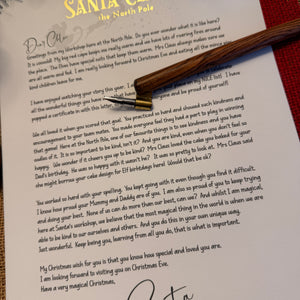 SANTA C
the North Pole
Dear
Greetings from my workshop here at the North Pole. Do you ever wonder what it is like here?
It is My big red robe keeps me really warm and we have lots of roaring fires around
the place. The Elves have special hats that keep them warm. Mrs Claus always makes sure we
are all warm and fed. I am really looking forward to Christmas Eve and eating all the
kind children leave for me.
I have enjoyed watching your story this year. I
all the wonderful things you NICE list! I have
popped a certificate in with this and be proud of yourself!
We all loved it when you scored that goal. You practised so hard and showed such kindness and
encouragement to your team mates. You made everyone feel they had a part to play in winning
that game! Here at the North Pole, one of our favourite things is to see kindness and you have
oodles of it. It is so important to be kind, isn't it? And you are kind, even when you don't feel so
happy. I wonder if it cheers you up to be kind? Mrs Claus loved the cake you baked for your
Dad's birthday. He was so happy with it wasn't he? It was so pretty to look at. Mrs Claus said
she might borrow your cake design for Elf birthdays here! Would that be ok?
You worked so hard with your spelling. You kept going with it even though you find it difficult.
I know how proud your Mummy and Daddy are of you. I am also so proud of you to keep trying
and doing your best. None of us can do more than our best, can we? And whilst I am magical,
here at Santa's workshop, we believe that the most magical thing in the world is when we are
able to be kind to our ourselves and others. And you do this in your own unique way.
Just wonderful. Keep being you, learning from all you do, that is what is important.
My Christmas wish for you is that you know how special and loved you are.
I am looking forward to visiting you on Christmas Eve.
Have a very magical Christmas,
Santa